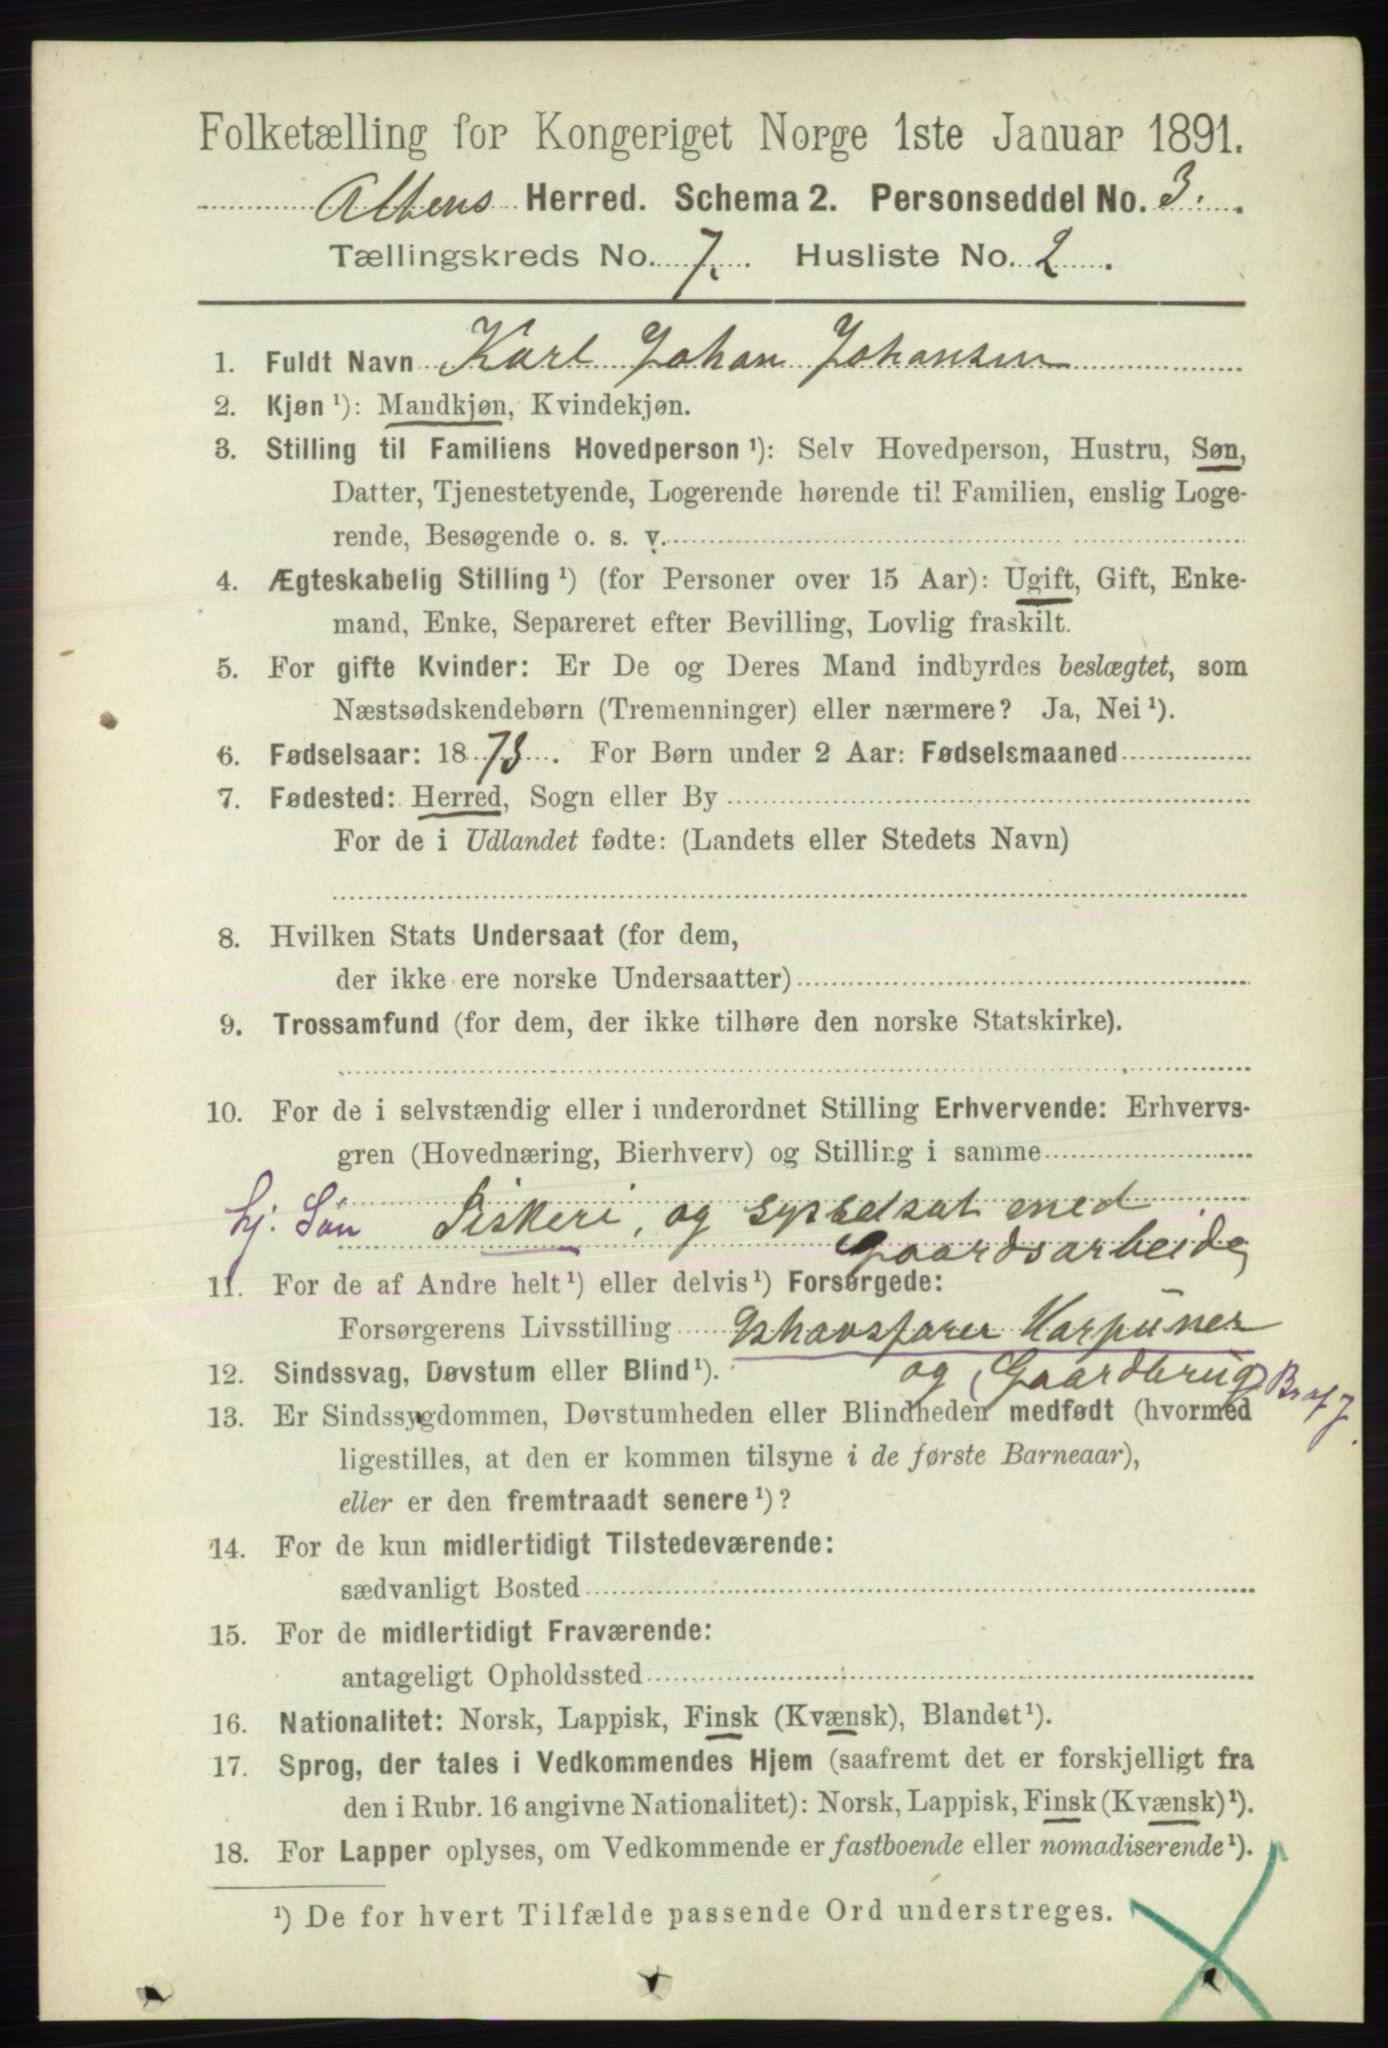 Folketælling for Kongeriget Norge 1ste Januar 1891.
Altens Herred. Schema 2. Personseddel No. 3.
Tællingskreds No. 7. Husliste No. 2.
1. Fuldt Navn Karl Johan Johansen
2. Kjøn ¹): Mandkjøn, Kvindekjøn.
3. Stilling til Familiens Hovedperson ¹): Selv Hovedperson, Hustru, Søn,
Datter, Tjenestetyende, Logerende hørende til Familien, enslig Loge-
rende, Besøgende o. s. v.
4. Ægteskabelig Stilling ¹) (for Personer over 15 Aar): Ugift, Gift, Enke-
mand, Enke, Separeret efter Bevilling, Lovlig fraskilt.
5. For gifte Kvinder: Er De og Deres Mand indbyrdes beslægtet, som
Næstsødskendebørn (Tremenninger) eller nærmere? Ja, Nei ¹).
6. Fødselsaar: 1873. For Børn under 2 Aar: Fødselsmaaned
7. Fødested: Herred, Sogn eller By
For de i Udlandet fødte: (Landets eller Stedets Navn)
8. Hvilken Stats Undersaat (for dem,
der ikke ere norske Undersaatter)
9. Trossamfund (for dem, der ikke tilhøre den norske Statskirke).
10. For de i selvstændig eller i underordnet Stilling Erhvervende: Erhvervs-
gren (Hovednæring, Bierhverv) og Stilling i samme
hj. Søn Fiskeri, og sysselsat med
Gaardsarbeide
11. For de af Andre helt ¹) eller delvis ¹) Forsørgede:
Forsørgerens Livsstilling Ishavsfarer Harpuner
12. Sindssvag, Døvstum eller Blind ¹). og Gaardbrug
13. Er Sindssygdommen, Døvstumheden eller Blindheden medfødt (hvormed
ligestilles, at den er kommen tilsyne i de første Barneaar),
eller er den fremtraadt senere ¹)?
14. For de kun midlertidigt Tilstedeværende:
sædvanligt Bosted
15. For de midlertidigt Fraværende:
antageligt Opholdssted
16. Nationalitet: Norsk, Lappisk, Finsk (Kvænsk), Blandet ¹).
17. Sprog, der tales i Vedkommendes Hjem (saafremt det er forskjelligt fra
den i Rubr. 16 angivne Nationalitet): Norsk, Lappisk, Finsk (Kvænsk) ¹).
18. For Lapper oplyses, om Vedkommende er fastboende eller nomadiserende ¹).
¹) De for hvert Tilfælde passende Ord understreges.